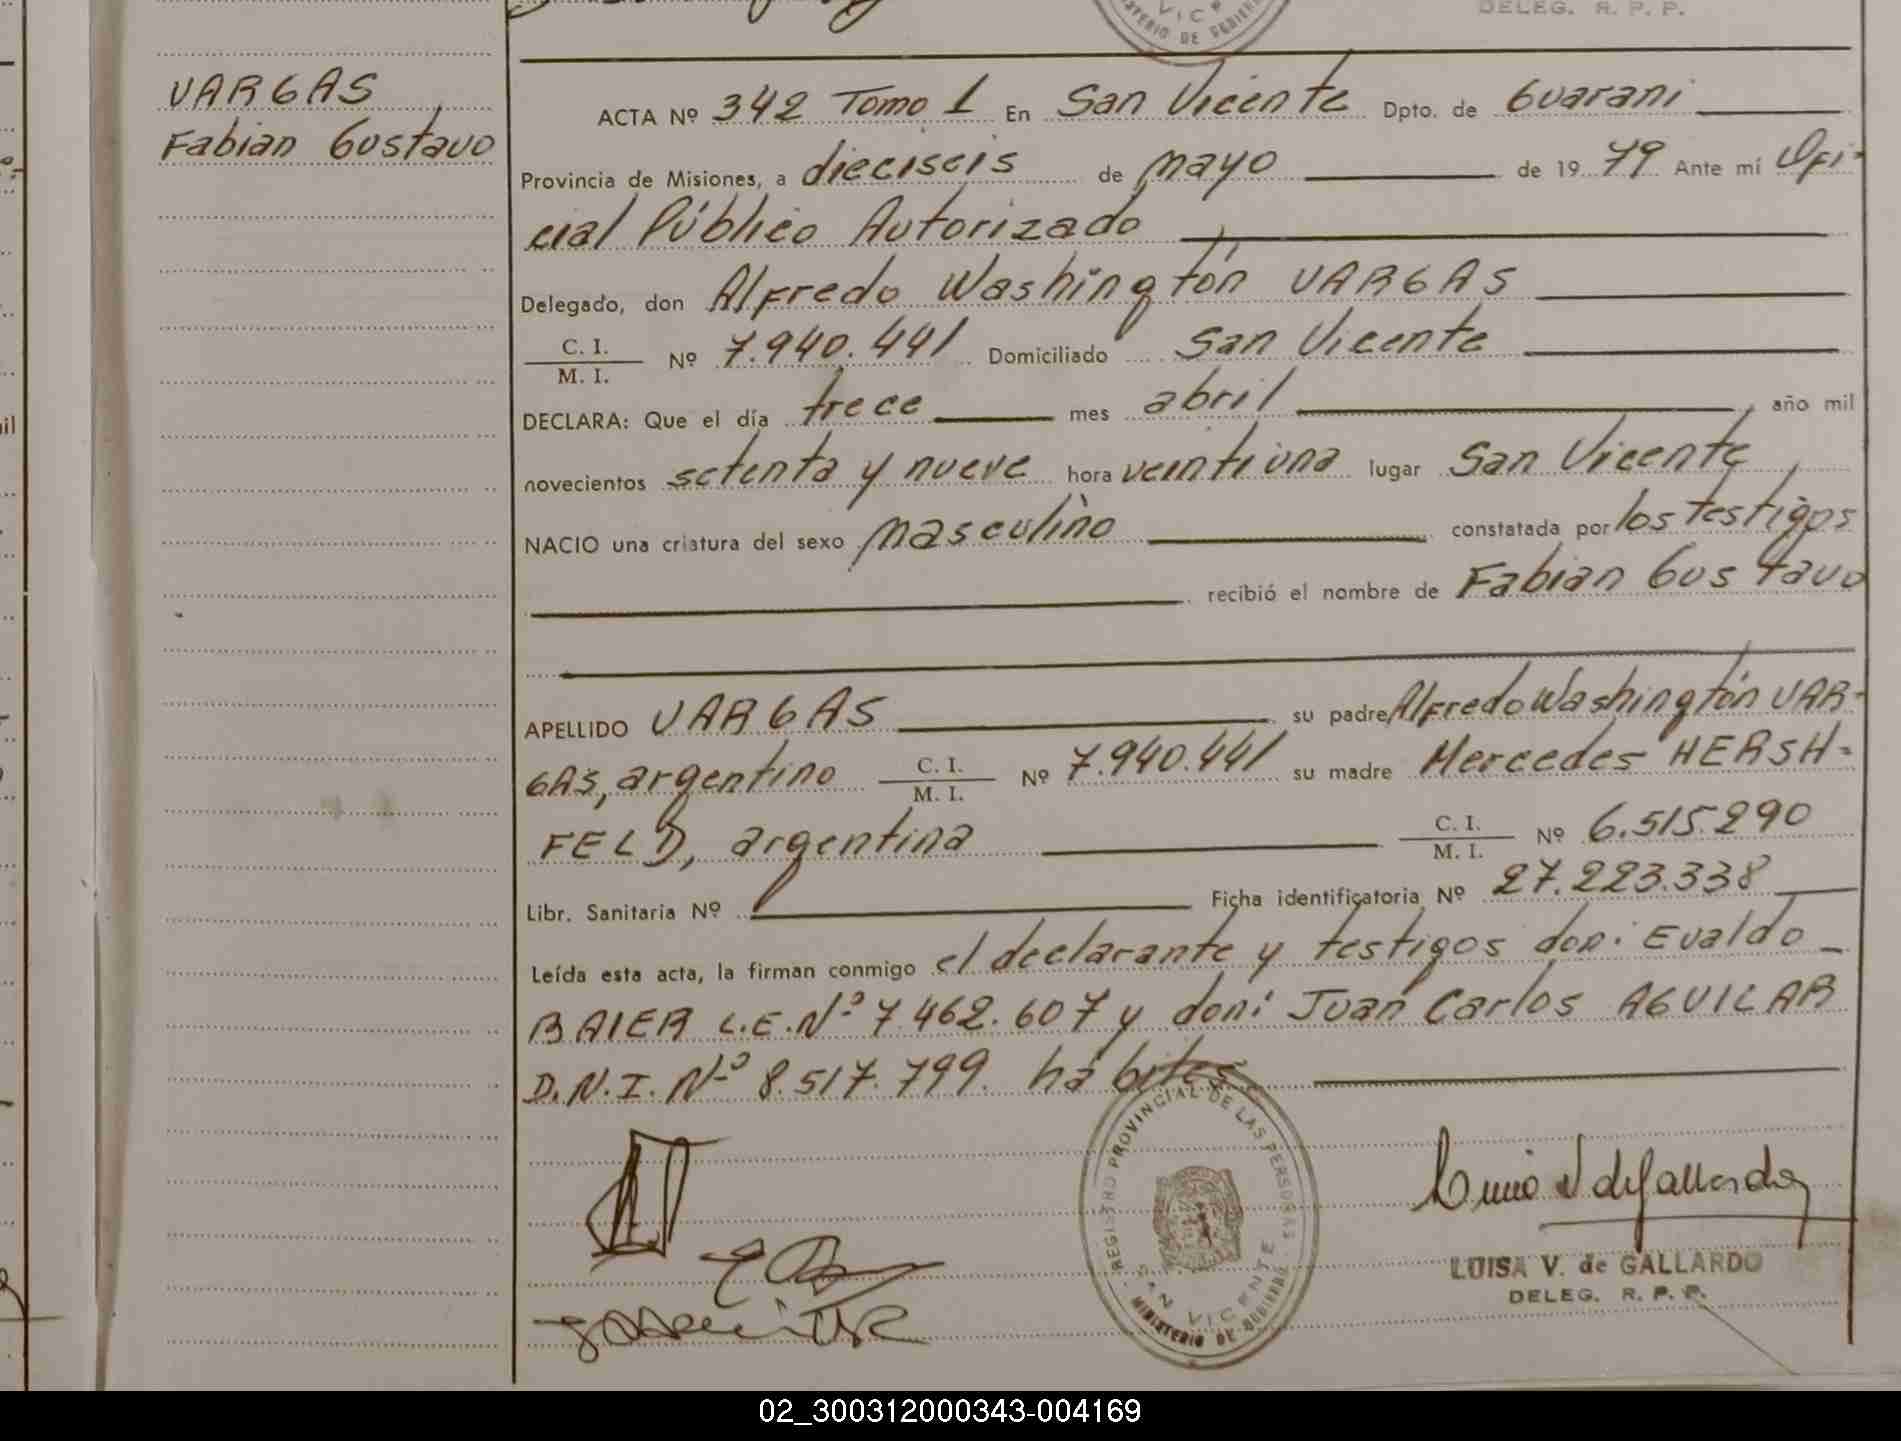 DELEG. R. P. P.
VARGAS
Fabian Gustavo
ACTA Nº 342 Tomo 1 En San Vicente Dpto. de Guarani
Provincia de Misiones, a dieciseis de mayo de 1979 Ante mí Ofi-
cial Público Autorizado
Delegado, don Alfredo Washingtón VARGAS
C. I.
M. I.
Nº 7.940.441 Domiciliado San Vicente
DECLARA: Que el día trece mes abril, año mil
novecientos setenta y nueve hora veintiuna lugar San Vicente,
NACIO una criatura del sexo masculino constatada por los testigos
recibió el nombre de Fabian Gustavo
APELLIDO VARGAS su padre Alfredo Washingtón VAR-
GAS, argentino C. I. M. I. Nº 7.940.441 su madre Mercedes HERSH-
FELD, argentina C. I. M. I. Nº 6.515.290
Libr. Sanitaria Nº Ficha identificatoria Nº 27.223.338
Leída esta acta, la firman conmigo el declarante y testigos don: Evaldo
BAIER L.E.Nº 7.462.607 y don: Juan Carlos AGUILAR
D.N.I. Nº 8.517.799. hábiles
REGISTRO PROVINCIAL DE LAS PERSONAS
SAN VICENTE
MINISTERIO DE GOBIERNO
LUISA V. de GALLARDO
DELEG. R. P. P.
02_300312000343-004169